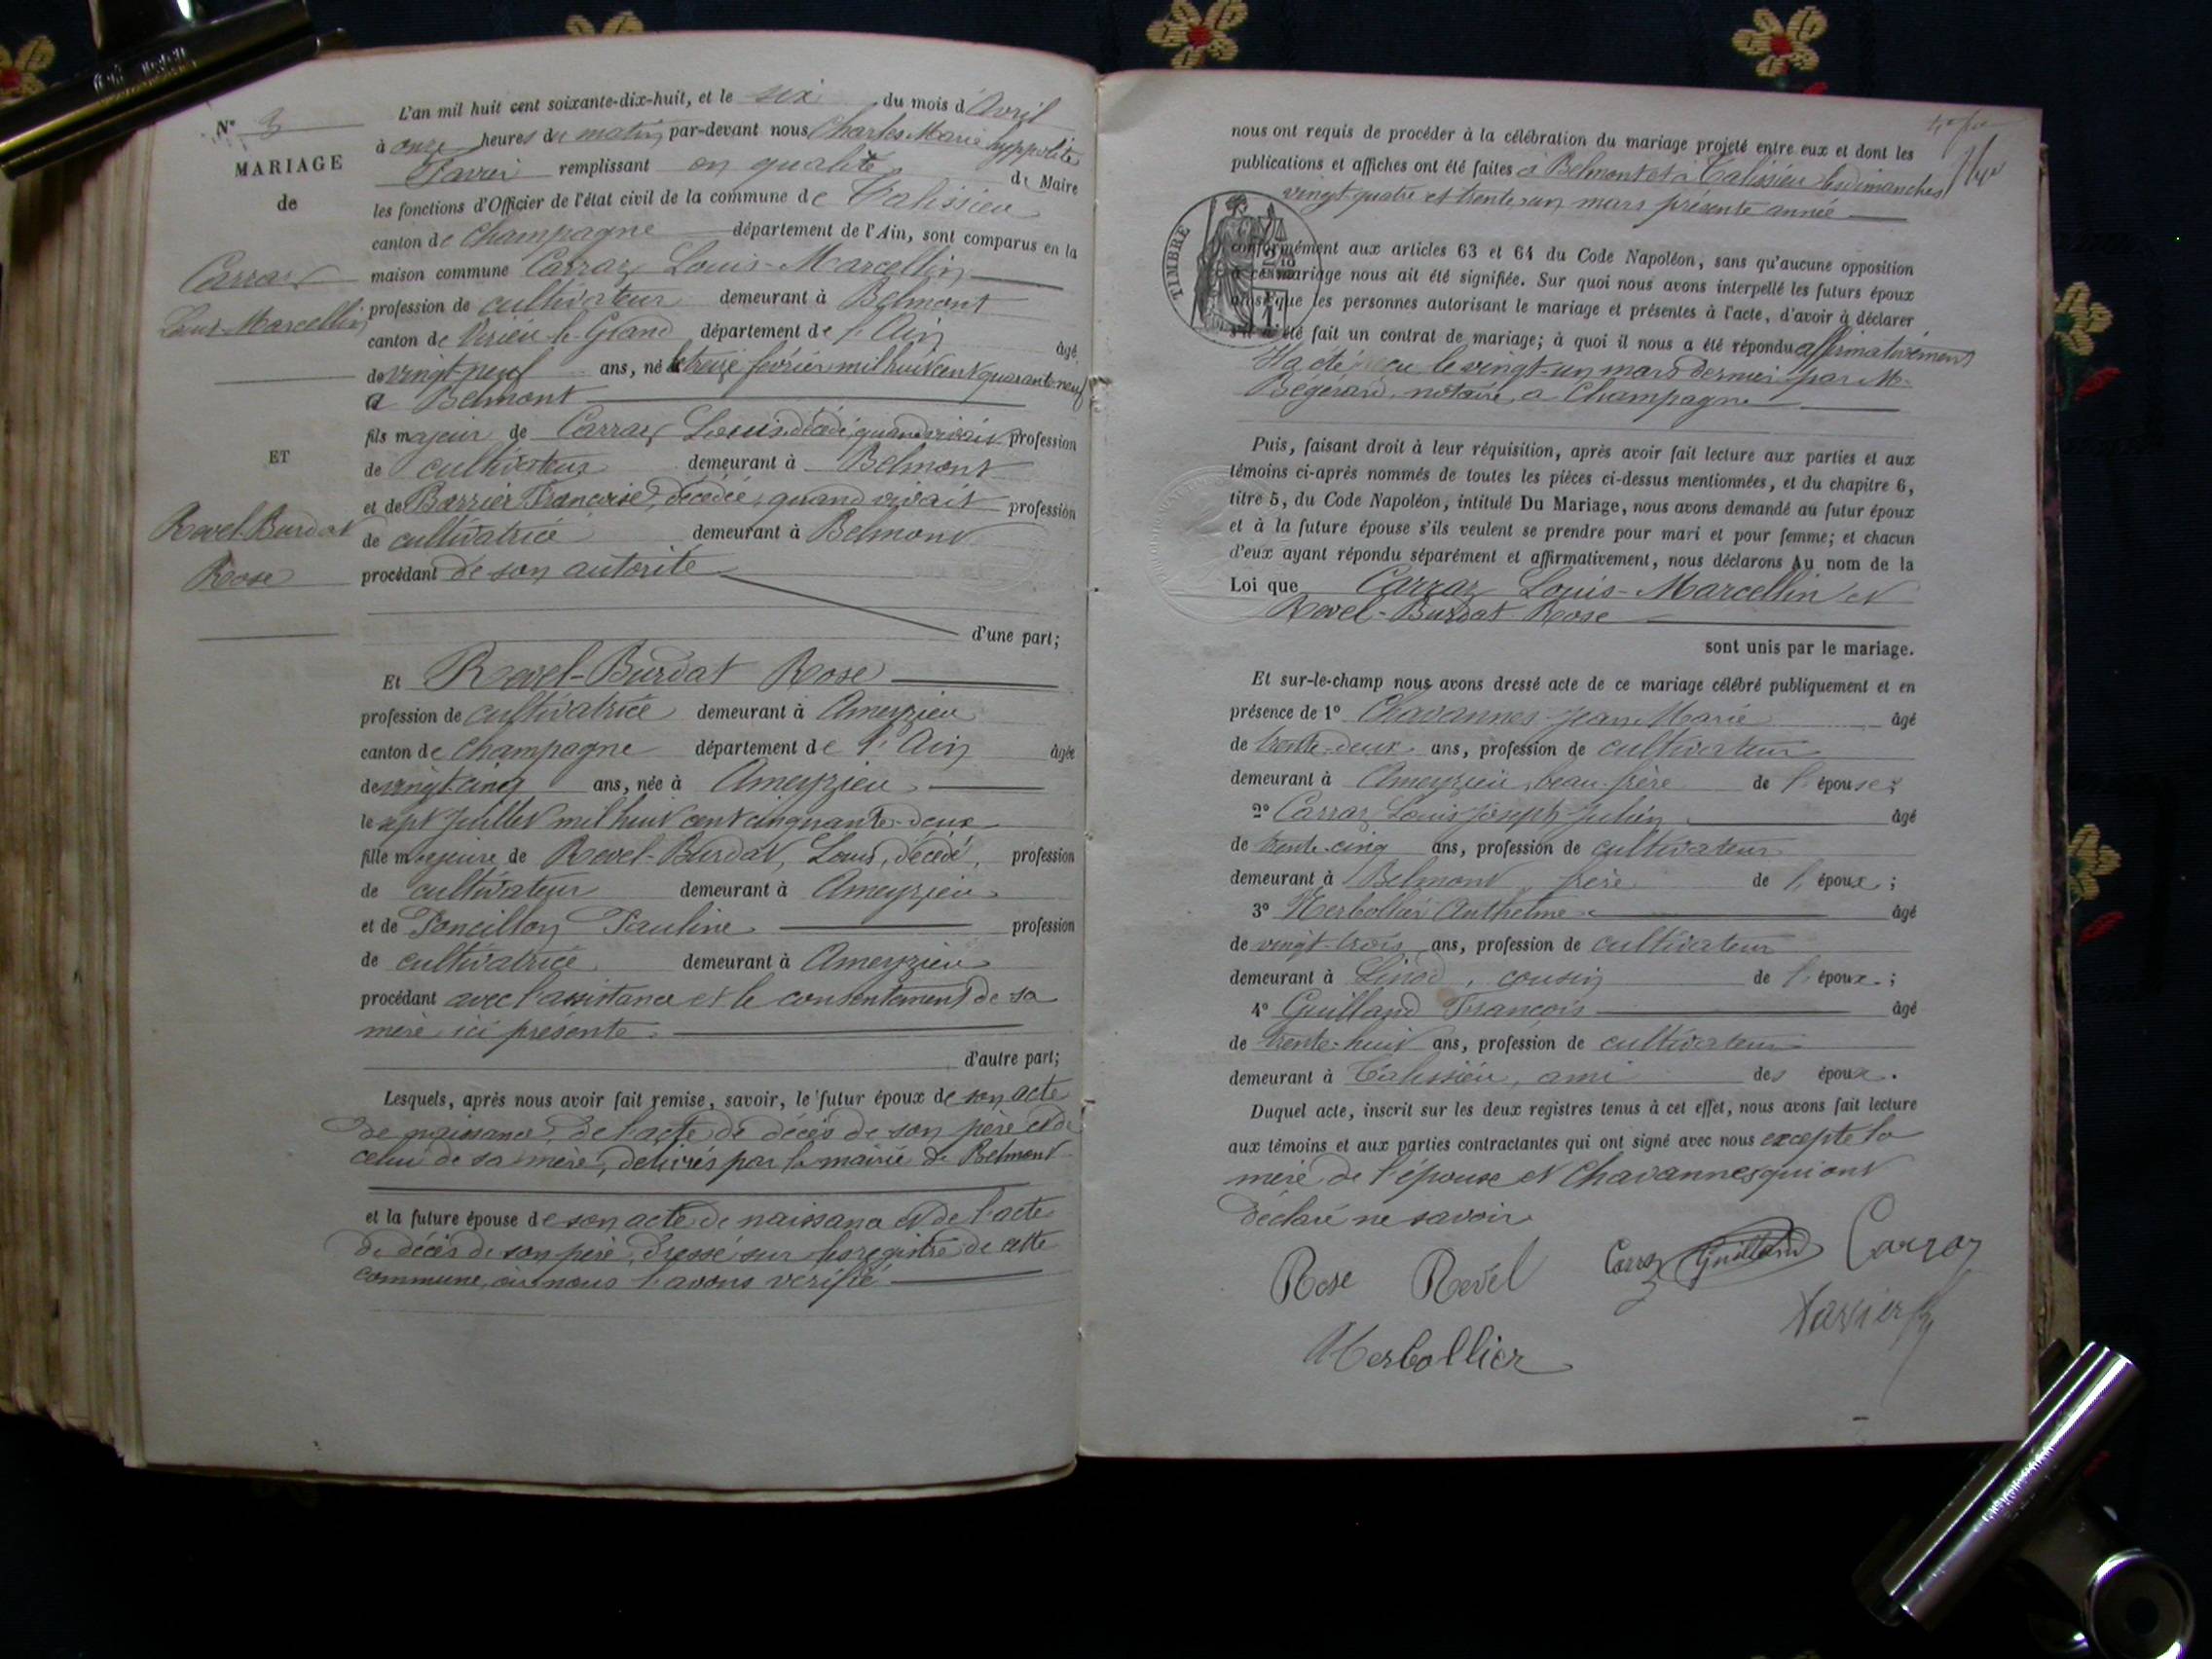 N° 3
MARIAGE
de
Carraz
Louis-Marcellin
ET
Revel-Burdat
Rose
L'an mil huit cent soixante-dix-huit, et le six du mois d'Avril
à onze heures du matin, par-devant nous Charles Marie hyppolite
remplissant en qualité de Maire
les fonctions d'Officier de l'état civil de la commune de Talissieu
canton de Champagne département de l'Ain, sont comparus en la
maison commune Carraz Louis-Marcellin
profession de cultivateur demeurant à Belmont
canton de Virieu-le-Grand département de l'Ain âgé
de vingt-neuf ans, né le treize février mil huit cent quarante-neuf
à Belmont
fils majeur de Carraz Louis, décédé, quand vivait profession
de cultivateur demeurant à Belmont
et de Barrier Françoise, décédée, quand vivait profession
de cultivatrice demeurant à Belmont
procédant de son autorité
d'une part;
Et Revel-Burdat Rose
profession de cultivatrice demeurant à Ameyzieu
canton de Champagne département de l'Ain âgée
de vingt-cinq ans, née à Ameyzieu
le sept Juillet mil huit cent cinquante-deux
fille majeure de Revel-Burdat, Louis, décédé, profession
de cultivateur demeurant à Ameyzieu
et de Poncillon Pauline profession
de cultivatrice demeurant à Ameyzieu
procédant avec l'assistance et le consentement de sa
mère ici présente
d'autre part;
Lesquels, après nous avoir fait remise, savoir, le futur époux de son acte
de naissance, de l'acte de décès de son père et de
celui de sa mère, délivrés par la mairie de Belmont
et la future épouse de son acte de naissance et de l'acte
de décès de son père, dressé sur les registre de cette
commune, où nous l'avons vérifié
nous ont requis de procéder à la célébration du mariage projeté entre eux et dont les
publications et affiches ont été faites à Belmont et à Talissieu les dimanches
vingt-quatre et trente un mars présente année
TIMBRE
conformément aux articles 63 et 64 du Code Napoléon, sans qu'aucune opposition
à ce mariage nous ait été signifiée. Sur quoi nous avons interpellé les futurs époux
ainsi que les personnes autorisant le mariage et présentes à l'acte, d'avoir à déclarer
s'il a été fait un contrat de mariage; à quoi il nous a été répondu affirmativement
Il a été reçu le vingt-un mars dernier par Me
Bégérard, notaire, à Champagne
Puis, faisant droit à leur réquisition, après avoir fait lecture aux parties et aux
témoins ci-après nommés de toutes les pièces ci-dessus mentionnées, et du chapitre 6,
titre 5, du Code Napoléon, intitulé Du Mariage, nous avons demandé au futur époux
et à la future épouse s'ils veulent se prendre pour mari et pour femme; et chacun
d'eux ayant répondu séparément et affirmativement, nous déclarons Au nom de la
Loi que Carraz Louis-Marcellin et
Revel-Burdat Rose
sont unis par le mariage.
Et sur-le-champ nous avons dressé acte de ce mariage célébré publiquement et en
présence de 1° Chavannes Jean Marie âgé
de trente-deux ans, profession de cultivateur
demeurant à Ameyzieu, beau-frère de l'épouse;
2° Carraz Louis Joseph Julien âgé
de trente-cinq ans, profession de cultivateur
demeurant à Belmont, frère de l'époux;
3° Merbollier Anthelme âgé
de vingt-trois ans, profession de cultivateur
demeurant à Linod, cousin de l'époux;
4° Guilland François âgé
de trente-huit ans, profession de cultivateur
demeurant à Talissieu, ami des époux.
Duquel acte, inscrit sur les deux registres tenus à cet effet, nous avons fait lecture
aux témoins et aux parties contractantes qui ont signé avec nous excepté la
mère de l'épouse et Chavannes qui ont
déclaré ne savoir
Rose Revel Carraz Guilland Carraz
Merbollier